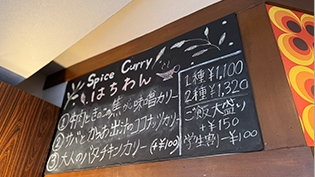 Spice Curry
はちわん
①牛肉ときのこの焦がし味噌カリー
②サバとからあ出汁のココナッツカリー
③大人のバタチキンカリー (+¥100)
1種 ¥1,100
2種 ¥1,320
ご飯大盛り
+¥150
学生割 -¥100